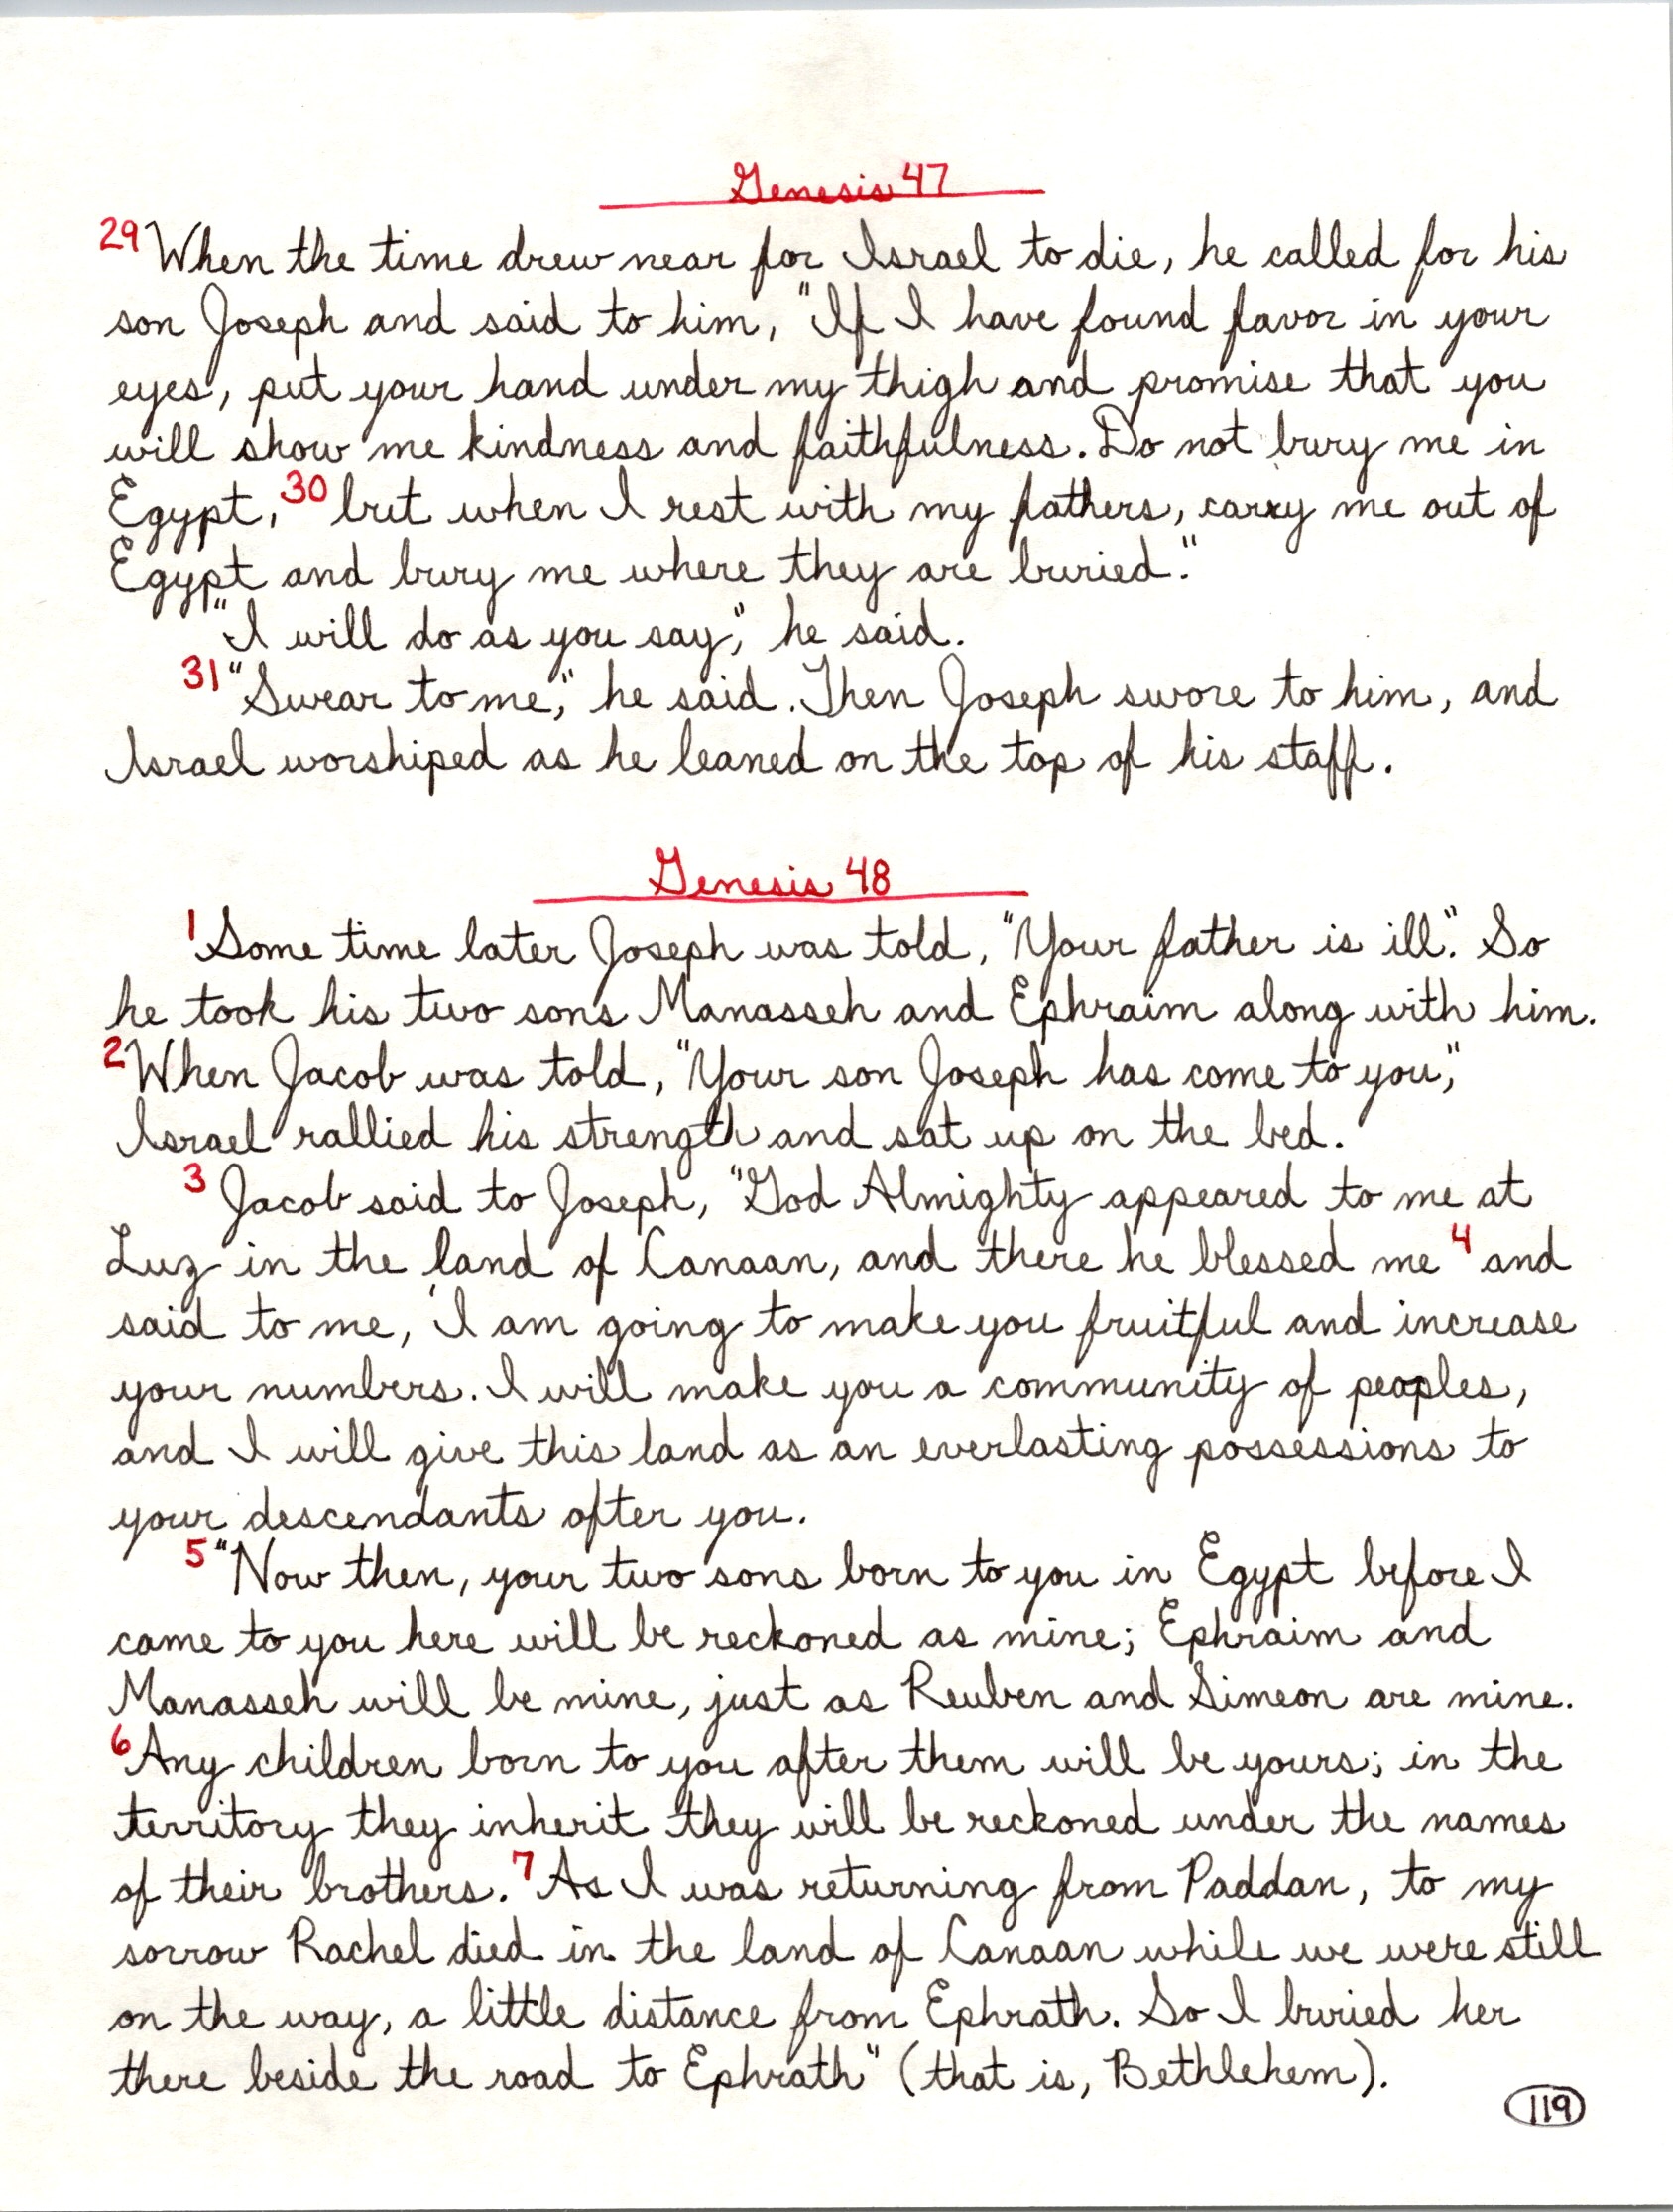 Genesis 47
29 When the time drew near for Israel to die, he called for his
son Joseph and said to him, "If I have found favor in your
eyes, put your hand under my thigh and promise that you
will show me kindness and faithfulness. Do not bury me in
Egypt, 30 but when I rest with my fathers, carry me out of
Egypt and bury me where they are buried."
"I will do as you say," he said.
31 "Swear to me," he said. Then Joseph swore to him, and
Israel worshiped as he leaned on the top of his staff.
Genesis 48
1 Some time later Joseph was told, "Your father is ill." So
he took his two sons Manasseh and Ephraim along with him.
2 When Jacob was told, "Your son Joseph has come to you,"
Israel rallied his strength and sat up on the bed.
3 Jacob said to Joseph, "God Almighty appeared to me at
Luz in the land of Canaan, and there he blessed me 4 and
said to me, 'I am going to make you fruitful and increase
your numbers. I will make you a community of peoples,
and I will give this land as an everlasting possessions to
your descendants after you.
5 "Now then, your two sons born to you in Egypt before I
came to you here will be reckoned as mine; Ephraim and
Manasseh will be mine, just as Reuben and Simeon are mine.
6 Any children born to you after them will be yours; in the
territory they inherit they will be reckoned under the names
of their brothers. 7 As I was returning from Paddan, to my
sorrow Rachel died in the land of Canaan while we were still
on the way, a little distance from Ephrath. So I buried her
there beside the road to Ephrath" (that is, Bethlehem).
119